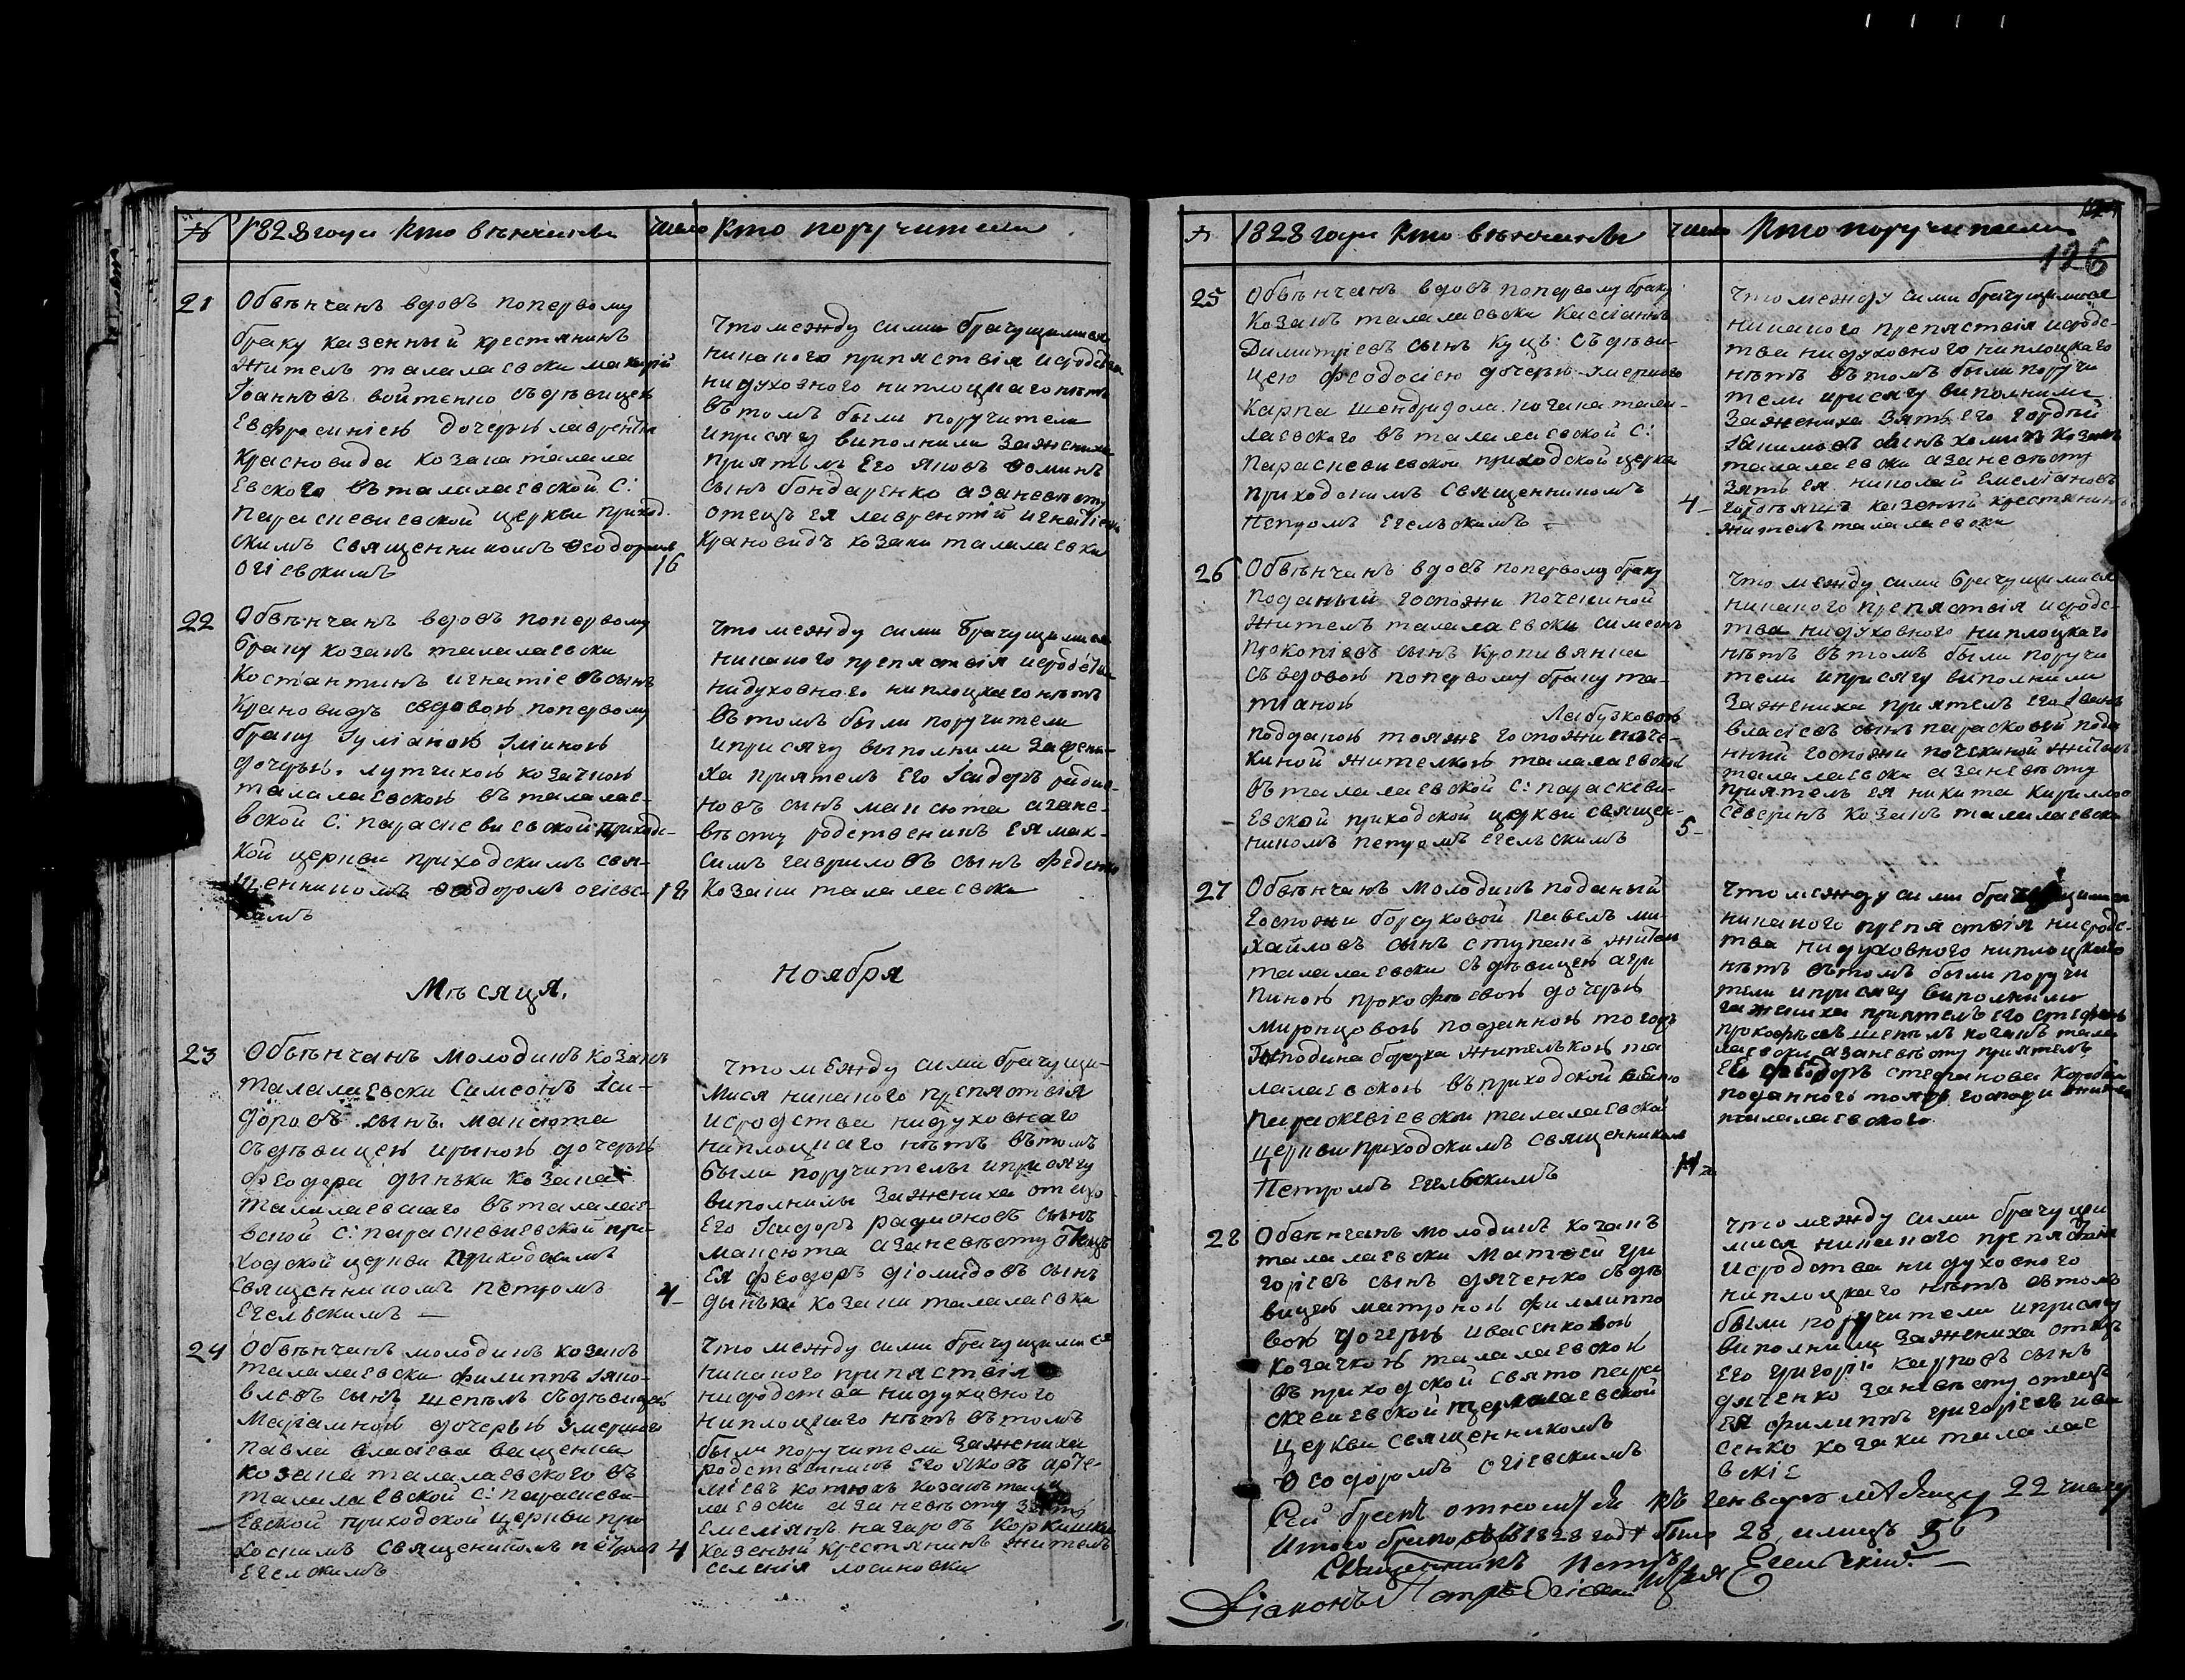 № 1828 года Кто венчаны число Кто поручители
21
Обвѣнчанъ вдовъ попервому
браку казенный крестянинъ
жителъ талалаевски макарій
Іоанновъ войтенко съдѣвицею
Евфросиніею дочерью лаврентия
красновида козака талала
Евского въталалаевской С:
параскевиевской церкви приход
скимъ священникомъ Ѳеодоромъ
огіевскимъ
16
Что между сими брачущимися
никакого припяствія исродства
нидуховного ниплоцкаго нѣтъ
вътомъ были поручители
иприсягу виполнили зажениха
приятель Его яковъ Ѳоминъ
сынъ бондаренко азаневѣсту
отецъ ея лаврентій игнатіевъ
крановидъ козаки талалаевски
22
Обвѣнчанъ вдовъ попервому
браку козакъ талалаевски
Костантинъ игнатіевъ сынъ
крановидъ свдовою попервому
браку Іуліаною
дочерью лутчикою козачкою
талалаевскою въталалае-
вской С: параскевиевской приходс-
кой церкви приходскимъ свя-
щенникомъ Ѳеодоромъ огіевс-
кимъ
18
Что между сими брачущимися
никакого препяствія исродства
нидуховного ниплоцкаго нѣтъ
вътомъ были поручители
иприсягу выполнили зажени-
ха приятель Его Ісидоръ радио-
новъ сынъ мансюта азане-
вѣсту родственникъ Ея мак-
симъ гавриловъ сынъ феденко
козаки талалаевски
Мѣсяца. ноября
23
Обвѣнчанъ молодикъ козакъ
талалаевски Симеонъ Іси-
доровъ сынъ мансюта
съдѣвицею ириною дочерью
феодора дынки козака
талалаевского въталалае-
вской С: параскевиевской при-
ходской церкви приходскимъ
священникомъ петромъ
Егельскимъ —
4
Что между сими брачущи-
мися никакого препяствія
исродства нидуховнаго
ниплоцкаго нѣтъ вътомъ
были поручители иприсягу
виполнилы зажениха отецъ
Его Ісидоръ радионовъ сынъ
мансюта азаневѣсту отецъ
Ея феодоръ діомидовъ сынъ
дынька козаки талалаевки
24
Обвѣнчанъ молодикъ козакъ
талалаевски филиппъ Іяко-
влевъ сынъ шепѣль съдѣвицею
Марѳамною дочерью умершего
павла власіева ващенка
козака талалаевского въ
талалаевской С: параскеви-
Евской приходской церкви при
хоскимъ священикомъ петромъ
Егелскимъ
4
Что между сими брачущимися
никакого припяствія
нисродства нидуховного
ниплоцкаго нѣтъ вътомъ
были поручители зажениха
родственникъ Его яковъ арте-
міевъ котюхъ козакъ тала
лаевски азаневѣсту зять
Емеліянъ назаровъ коркишка
казеный крестянинъ жителъ
селенія лосиновки
№ 1828 года Кто вѣнчаны число Кто поручители
126
25
Обвѣнчанъ вдовъ попервому браку
Козакъ талалаевски Кассіанъ
Димитріевъ сынъ куцъ: съдѣви-
цею феодосіею дочерью умершого
Карпа шендридола козака тала-
лаевского въталалаевской С:
параскевиевской приходской церкви
приходскимъ священникомъ
Петромъ Егельскимъ —
4
Что между сими брачущимися
никакого препяствія исродс-
тва нидуховного ниплоцкаго
нѣтъ вътомъ были поручи
тели иприсягу виполнили
зажениха зять Его гордый
сынъ хомикъ козакъ
талалаевски азаневѣсту
зять ея николай Емеліановъ
казеный крестянинъ
жителъ талалаевски
26
Обвѣнчанъ вдовъ попервому браку
поданый госпожи почекиной
жителъ талалаевски симеонъ
прокопіевъ сынъ кропивянка
съвдовою попервому браку та-
тіаною
Лабузковою
подданою тояжъ госпожи поче-
киной жителкою талалаевскою
въталалаевской С: параскеви-
Евской приходской церкви священ-
никомъ петромъ Егельскимъ
5
Что между сими брачущимися
никакого препяствія исродс-
тва нидуховного ниплоцкаго
нѣтъ вътомъ были поручи
тели иприсягу виполнили
зажениха приятель Его Іванъ
власіевъ сынъ параскевій пода
нный госпожи почекиной жителъ
талалаевски азаневѣсту
приятель ея никита кирилловъ
северинъ козакъ талалаевски
27
Обвѣнчанъ молодикъ поданый
госпожи борсуковой павелъ ми-
хайловъ сынъ ступакъ житель
талалаевски съдѣвицею агри
пиною прокофіевою дочерью
миронцовою поданною тогожъ
Господина борсука жителькою та
лалаевскою въприходской свято
параскевіевской талалаевской
церкви приходскимъ священникомъ
Петромъ Егельскимъ
14
Что между сими брачущимися
никакого препяствія нисродс-
тва нидуховного ниплоцкаго
нѣтъ вътомъ были поручи
тели иприсягу виполнили
зажениха приятель его стефанъ
прокофіевъ шепѣль козакъ тала
лаевски азаневѣсту приятель
Ей феодоръ стефанова
поданного тояжъ госпожи жителя
талалаевского
28
Обвѣнчанъ молодикъ козакъ
талалаевски Матѳей гри
горіевъ сынъ дяченко съдѣ
вицею матроною филиппо
вою дочерью ивасенковою
козачкою талалаевскою
въприходской свято пара
скевиевской талалаевской
церкви священникомъ
Ѳеодоромъ огіевскимъ
Что между сими брачущи
мися никакого препяствія
исродства нидуховного
ниплоцкаго нѣтъ вътомъ
были поручители иприсягу
виполнили зажениха отецъ
Его григорій карповъ сынъ
дяченко заневѣсту отецъ
Ея филиппъ григоріевъ ива
сенко козаки талалае
вскіе
Сей бракъ относится къ генварю мѣсяцу 22 числу
Итого браковъ въ 1828 годѣ было 28, алицъ 56
Священникъ Петръ Егельскій
Діаконъ Петръ Огіевский